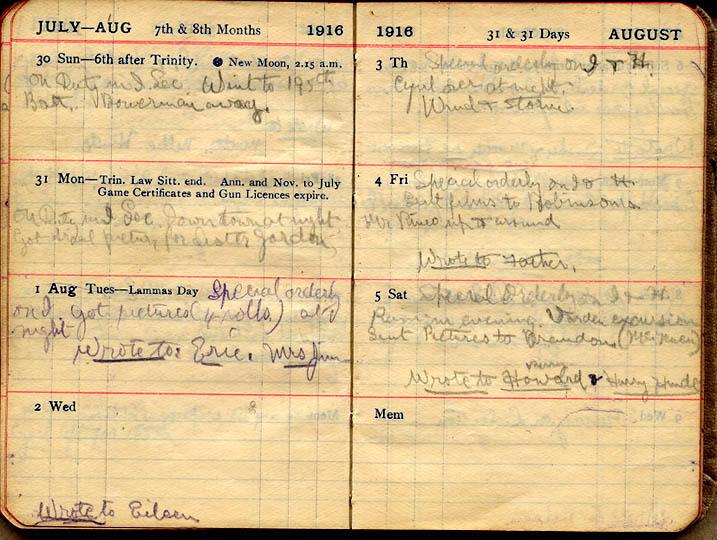 JULY—AUG 7th & 8th Months 1916
30 Sun—6th after Trinity. New Moon, 2.15 a.m.
On Duty in I Sec. Went to 195th
Batt. Bowerman away.
31 Mon—Trin. Law Sitt. end. Ann. and Nov. to July
Game Certificates and Gun Licences expire.
On Duty in I Sec. Down town at night
Got picture for Sister Gordon
1 Aug Tues—Lammas Day Special orderly
on I. Got pictures (4 rolls) at
night
Wrote to: Eric. Mrs Jim
2 Wed
Wrote to Eileen
1916 31 & 31 Days AUGUST
3 Th Special orderly on I & H.
at night.
Wind & storm.
4 Fri Special orderly on I & H.
films to Robinsons
up & around
Wrote to Father.
5 Sat Special Orderly on I & H.
evening. excursion
Sent Pictures to Brandon
Wrote to Howard & Harry
Mem